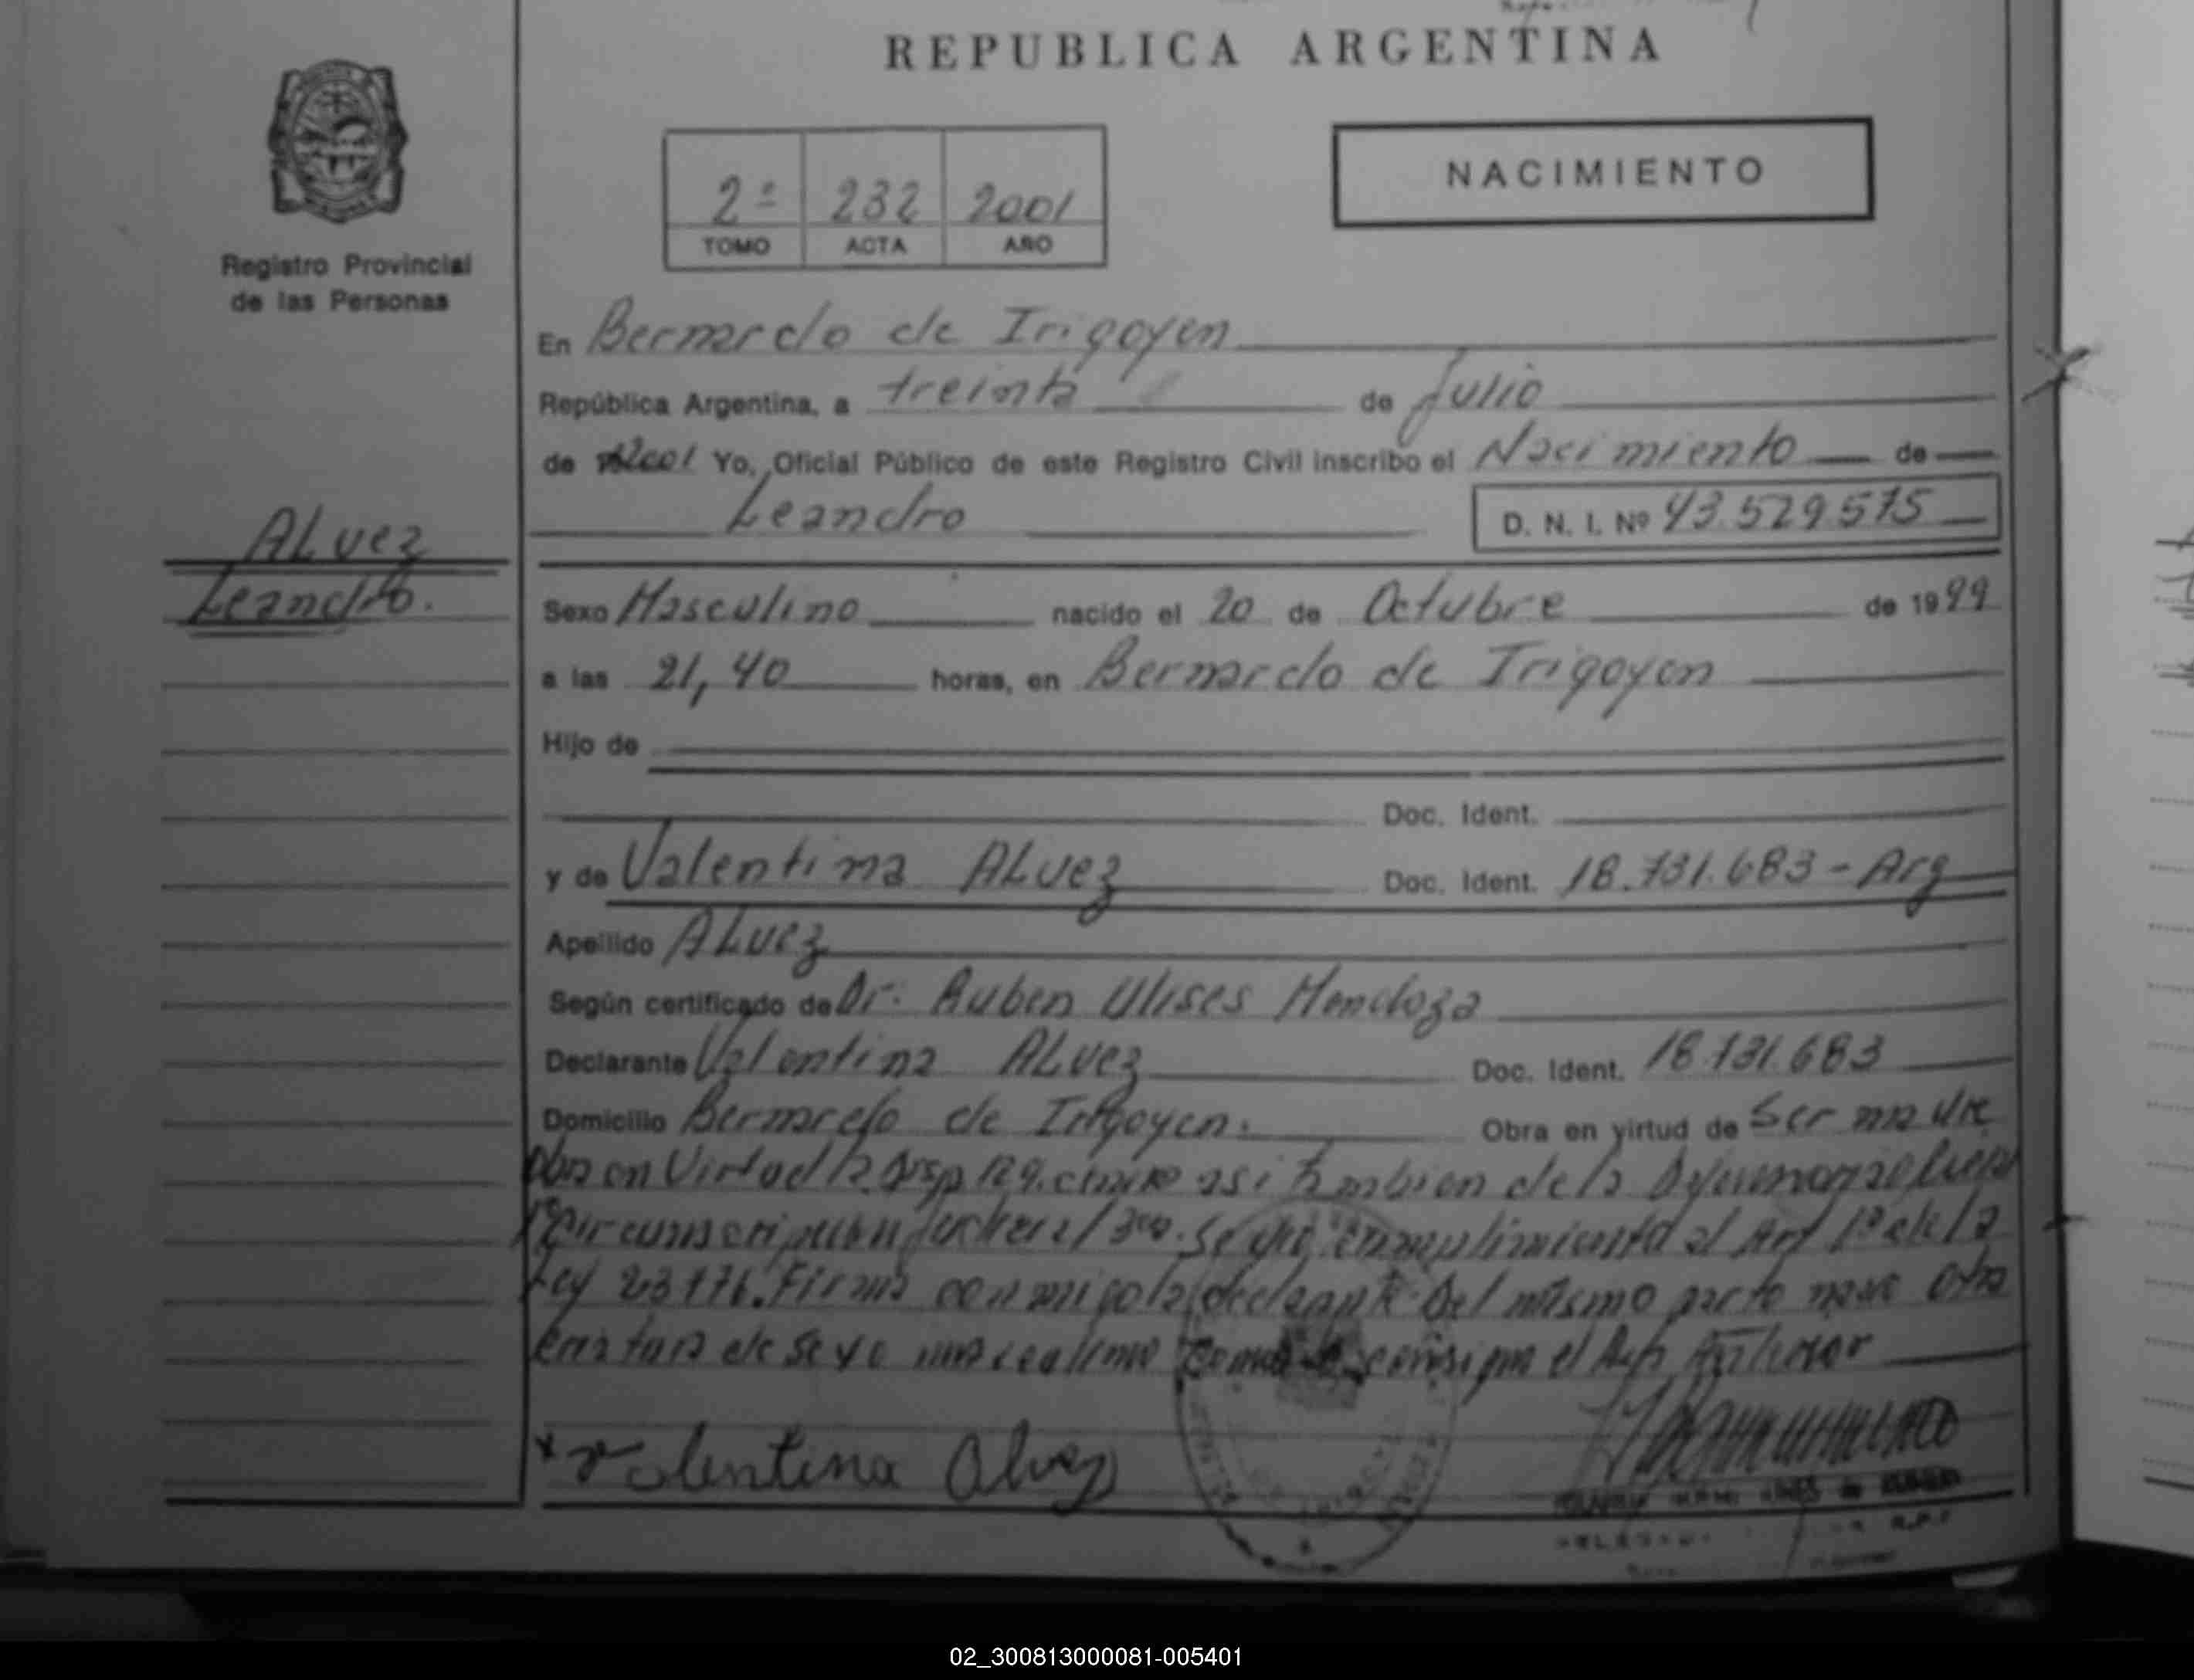 REPUBLICA ARGENTINA
NACIMIENTO
2ª 232 2001
TOMO ACTA AÑO
Registro Provincial
de las Personas
En Bernardo de Irigoyen
República Argentina, a treinta de Julio
de 2001 Yo, Oficial Público de este Registro Civil inscribo el Nacimiento de
Leandro D. N. I. Nº 43.529.575
ALvez
Leandro.
Sexo Masculino nacido el 20 de Octubre de 1999
a las 21,40 horas, en Bernardo de Irigoyen
Hijo de
Doc. Ident.
y de Valentina ALvez Doc. Ident. 18.731.683 - Arg
Apellido ALvez
Según certificado de Dr. Ruben Ulises Mendoza
Declarante Valentina ALvez Doc. Ident. 18.731.683
Domicilio Bernardo de Irigoyen. Obra en virtud de Ser madre
en Virtud asi tambien de la
Circunscripción Se dió cumplimiento al Art 1º de la
Ley 23776. Firma conmigo la declarante Del mismo parto nace otra
de sexo masculino como consigna el Acta Anterior
x Valentina Alvez
02_300813000081-005401